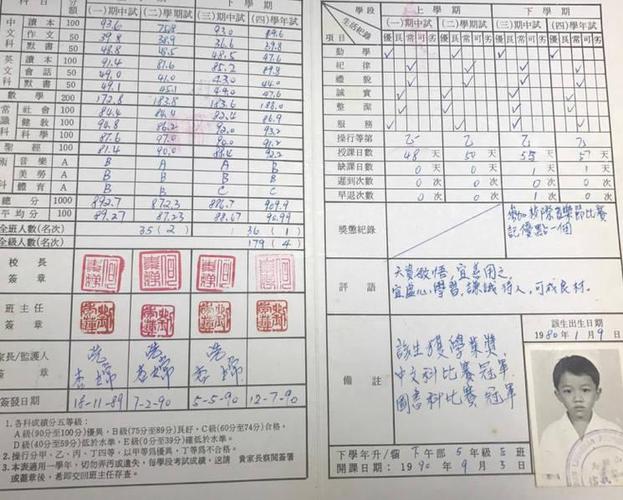 科目
分額
上學期
下學期
(一)期中試 (二)學期試 (三)期中試 (四)學年試
中文科 讀本 100 93.6 75.8 93.0 89.6
作文 50 39.8 38.9
默書 50 48.8 48.5 48.5 47.6
英文科 讀本 100 91.4 87.6 85.2 89.8
會話 50 49.0 41.0 43.0 44.0
默書 50 49.1 45.1 49.0 47.6
數學 200 172.8 183.8 183.6 188.0
常識科 社會 100 84.4 84.4 82.4 86.9
健教 100 94.8 86.2 92.0 93.2
科學 100 87.6 97.0 90.0 91.2
聖經 100 81.4 90.0 92.2
音樂 A B A A B
美勞 A B B B B
體育 A B B C C
總分 1000 892.7 872.3 886.7 909.9
平均分 100 89.27 87.23 88.67 90.99
全班人數(名次) 35(2) 36(1)
全級人數(名次) 179(4)
校長簽章
班主任簽章
家長/監護人簽章
簽發日期 18-11-89 7-2-90 5-5-90 12-7-90
1.各科成績分五等級:
A級(90分至100分)優異,B級(75分至89分)良好,C級(60分至74分)合格,
D級(40分至59分)低於水準,E級(0分至39分)確低於水準。
2.操行分甲、乙、丙、丁四等,以甲等為優異,丁等為不合格。
3.本表適用一學年,切勿弄污或遺失,每學段考試成績,送請 貴家長察閱簽署
或蓋章後,希即交回班主任存查。
學段 上學期 下學期
生活紀錄
項目 優 良 常 可 劣 優 良 常 可 劣 優 良 常 可 劣 優 良 常 可 劣
勤學
紀律
禮貌
誠實
整潔
服務
操行等第
授課日數 48天 50天 55天 57天
缺課日數 0天 0天 1天 1天
遲到次數 0次 0次 0次 0次
早退次數 0次 0次 1次 0次
獎懲紀錄
參加校際音樂節比賽
記優點一個
評語
天資敏悟,宜善用之,
宜虛心學習,謙誠待人,可成良材。
備註
該生獲學業獎,
中文科比賽冠軍,
圖書科比賽冠軍
該生出生日期
1980年1月9日
下學年升/留 下午部5年級
開課日期:1990年9月3日